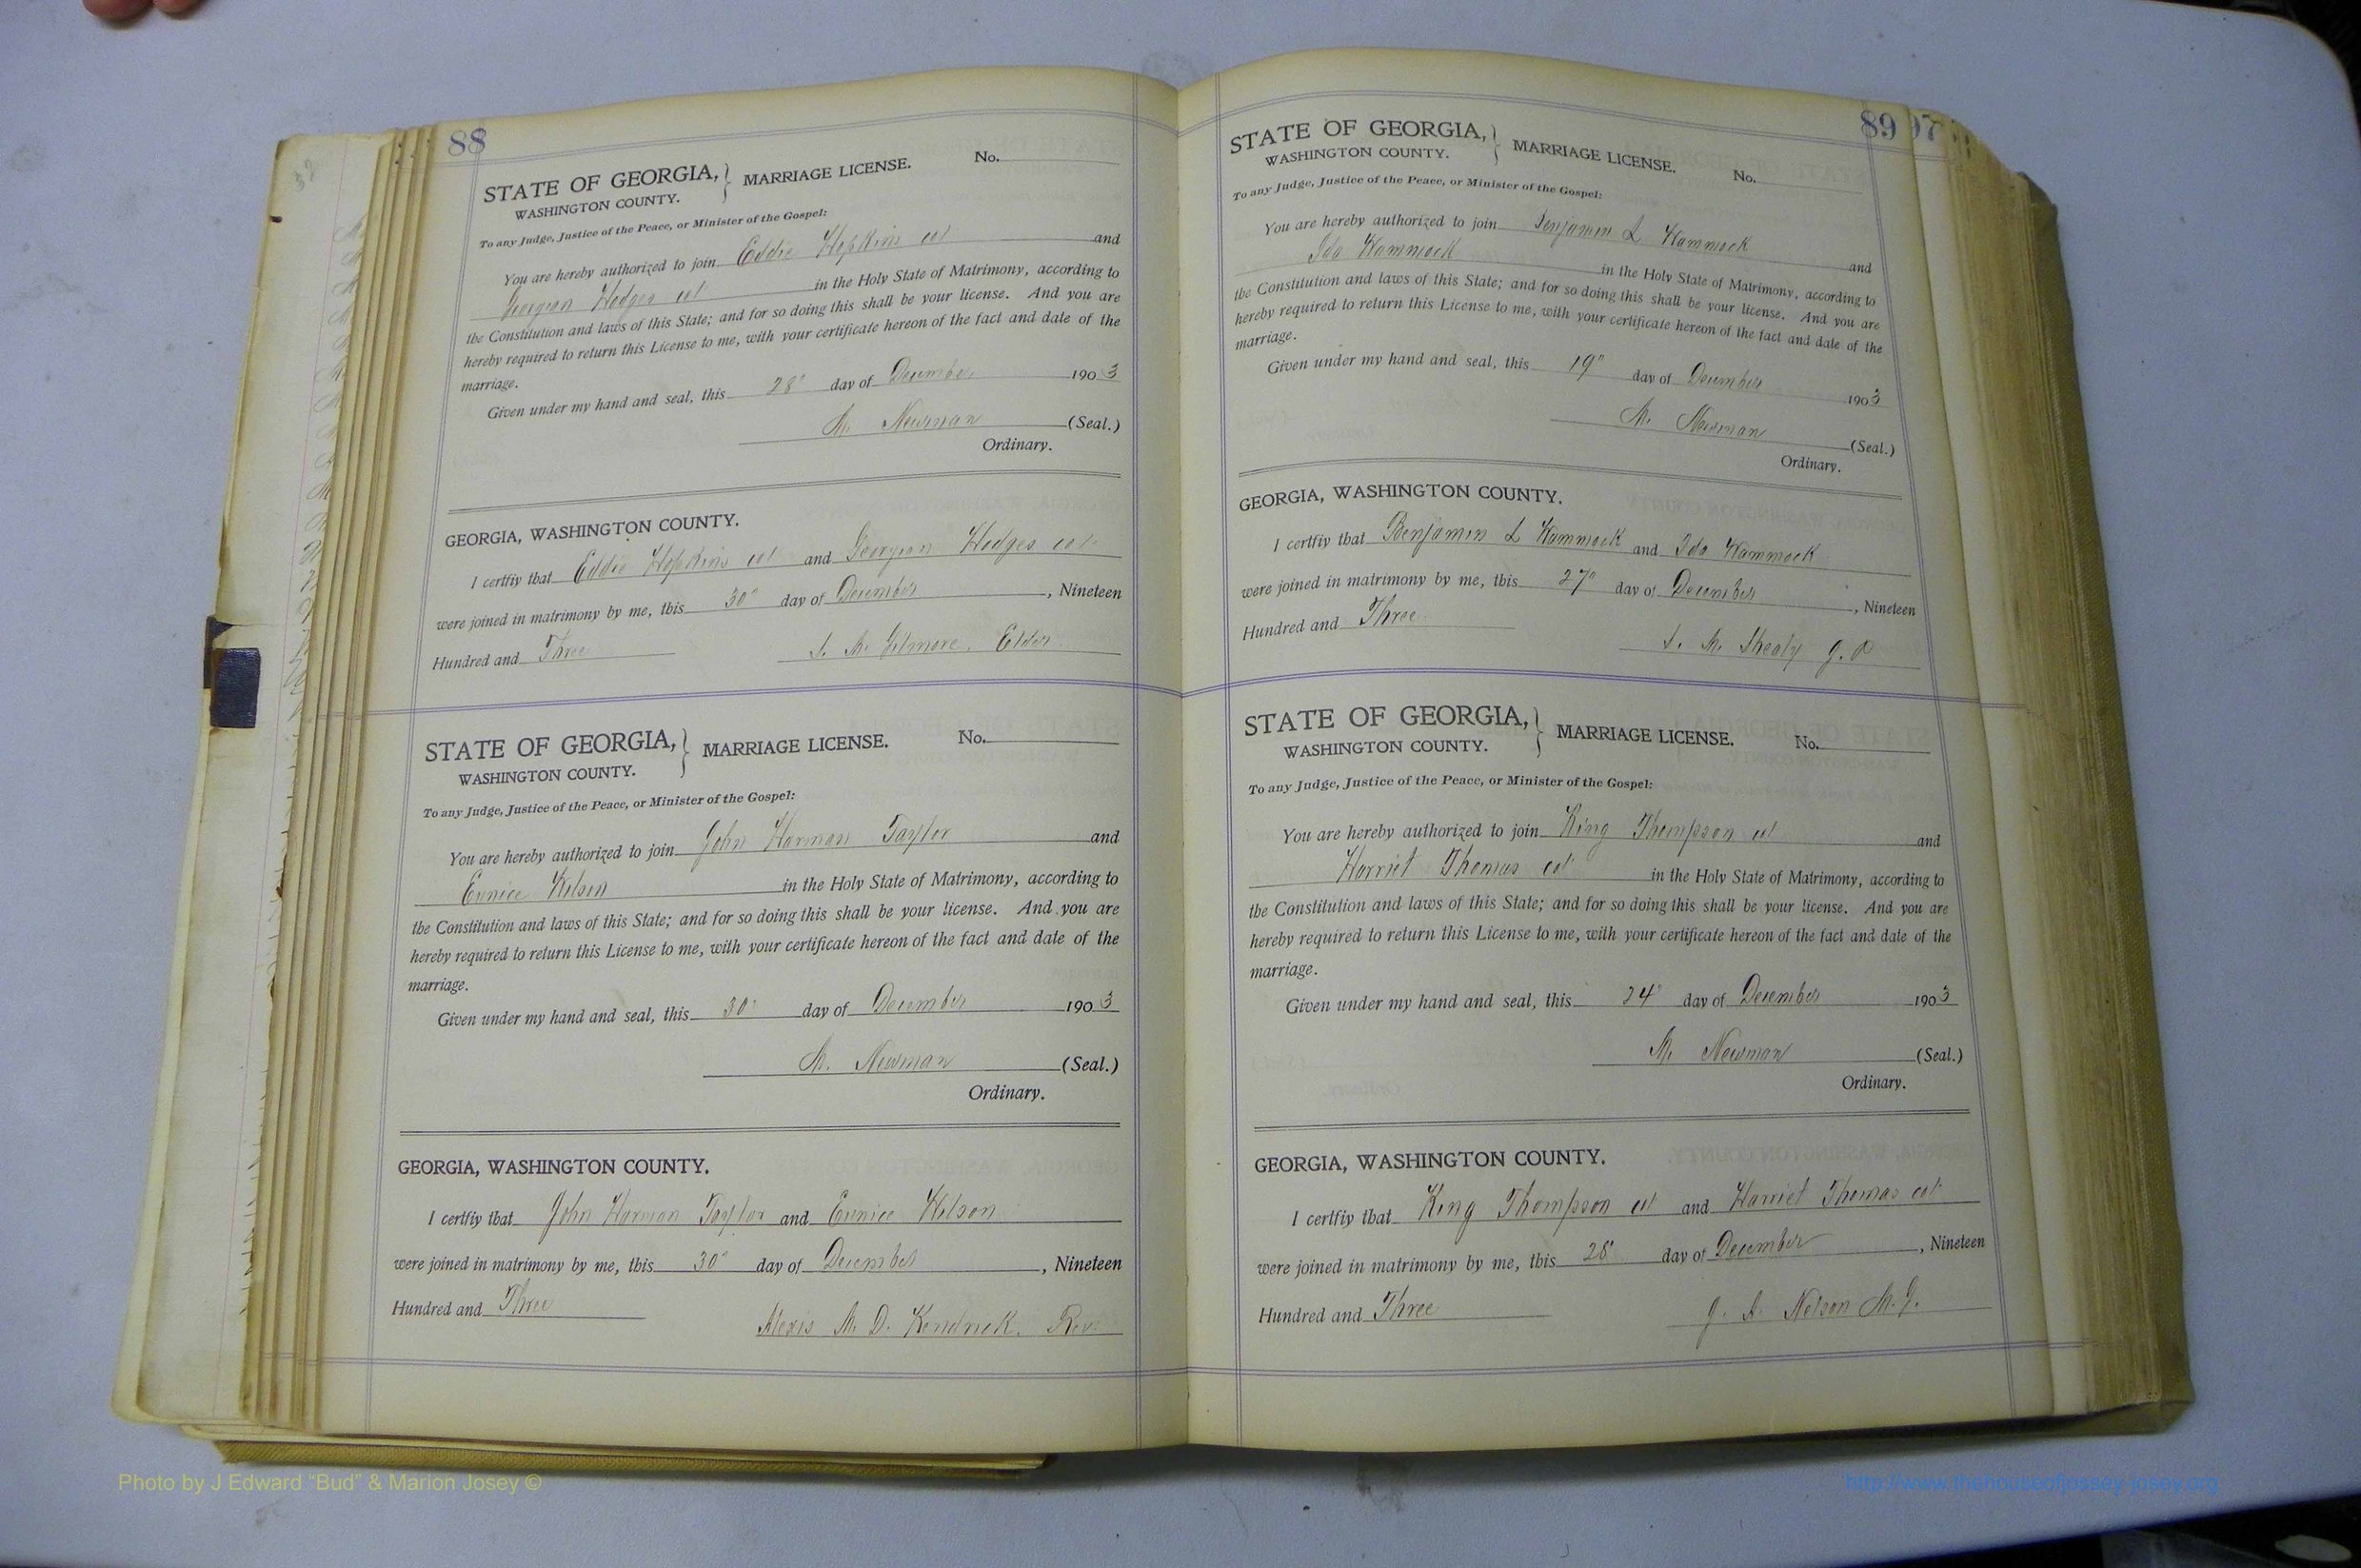 88
STATE OF GEORGIA, } MARRIAGE LICENSE. No.
WASHINGTON COUNTY.
To any Judge, Justice of the Peace, or Minister of the Gospel:
You are hereby authorized to join Eddie Hopkins col and
Georgean Hodges col in the Holy State of Matrimony, according to
the Constitution and laws of this State; and for so doing this shall be your license. And you are
hereby required to return this License to me, with your certificate hereon of the fact and date of the
marriage.
Given under my hand and seal, this 28" day of December 1903
M. Newman (Seal.)
Ordinary.
GEORGIA, WASHINGTON COUNTY.
I certfiy that Eddie Hopkins col and Georgean Hodges col
were joined in matrimony by me, this 30" day of December, Nineteen
Hundred and Three
S. M. Gilmore, Elder
STATE OF GEORGIA, } MARRIAGE LICENSE. No.
WASHINGTON COUNTY.
To any Judge, Justice of the Peace, or Minister of the Gospel:
You are hereby authorized to join John Harman Taylor and
Eunice in the Holy State of Matrimony, according to
the Constitution and laws of this State; and for so doing this shall be your license. And you are
hereby required to return this License to me, with your certificate hereon of the fact and date of the
marriage.
Given under my hand and seal, this 30" day of December 1903
M. Newman (Seal.)
Ordinary.
GEORGIA, WASHINGTON COUNTY.
I certfiy that John Harman Taylor and Eunice
were joined in matrimony by me, this 30" day of December, Nineteen
Hundred and Three
Alexis M. D. Kendrick. Rev.
89
97
STATE OF GEORGIA, } MARRIAGE LICENSE. No.
WASHINGTON COUNTY.
To any Judge, Justice of the Peace, or Minister of the Gospel:
You are hereby authorized to join Benjamin L Hammock and
Ida Hammock in the Holy State of Matrimony, according to
the Constitution and laws of this State; and for so doing this shall be your license. And you are
hereby required to return this License to me, with your certificate hereon of the fact and date of the
marriage.
Given under my hand and seal, this 19" day of December 1903
M. Newman (Seal.)
Ordinary.
GEORGIA, WASHINGTON COUNTY.
I certfiy that Benjamin L Hammock and Ida Hammock
were joined in matrimony by me, this 27" day of December, Nineteen
Hundred and Three
S. M. Shealy J. P
STATE OF GEORGIA, } MARRIAGE LICENSE. No.
WASHINGTON COUNTY.
To any Judge, Justice of the Peace, or Minister of the Gospel:
You are hereby authorized to join King Thompson col and
Harriet Thomas col in the Holy State of Matrimony, according to
the Constitution and laws of this State; and for so doing this shall be your license. And you are
hereby required to return this License to me, with your certificate hereon of the fact and date of the
marriage.
Given under my hand and seal, this 24" day of December 1903
M. Newman (Seal.)
Ordinary.
GEORGIA, WASHINGTON COUNTY.
I certfiy that King Thompson col and Harriet Thomas col
were joined in matrimony by me, this 28" day of December, Nineteen
Hundred and Three
J. A. Nelson M. G.
Photo by J Edward “Bud” & Marion Josey ©
http://www.thehouseofjossey-josey.org